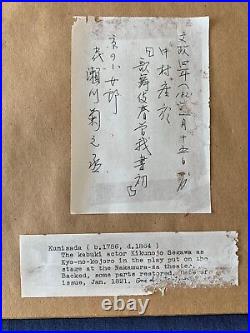 文政四年(一八二一)一月十五日
中村座於
歌舞伎春曽我書初
京の小女郎
瀬川菊之丞
Kunisada ( b.1786, d.1864 )
The kabuki actor Kikunojo Segawa as
Kyo-no-kojoro in the play put on the
stage at the Nakamura-za theater.
Backed, some parts restored. Date of
issue, Jan. 1821.